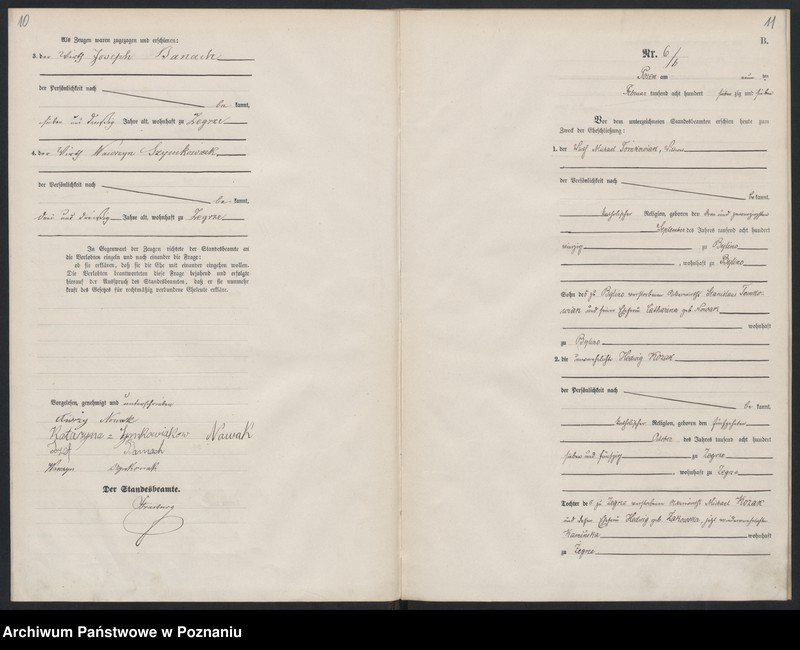 10
Als Zeugen waren zugezogen und erschienen:
3. der Wirth Joseph Banach
der Persönlichkeit nach
be kannt,
sieben und dreißig Jahre alt, wohnhaft zu Zegrze
4. der Wirth Wawrzyn Szymkowiak
der Persönlichkeit nach
be kannt,
drei und dreißig Jahre alt, wohnhaft zu Zegrze
In Gegenwart der Zeugen richtete der Standesbeamte an
die Verlobten einzeln und nach einander die Frage:
ob sie erklären, daß sie die Ehe mit einander eingehen wollen.
Die Verlobten beantworteten diese Frage bejahend und erfolgte
hierauf der Ausspruch des Standesbeamten, daß er sie nunmehr
kraft des Gesetzes für rechtmäßig verbundene Eheleute erkläre.
Vorgelesen, genehmigt und unterschrieben
Nowak
Katarzyna z Nowak
Józef Banach
Wawrzyn
Der Standesbeamte.
11
B.
Nr. 6
Posen am
Februar tausend acht hundert sieben zig und sieben
Vor dem unterzeichneten Standesbeamten erschien heute zum
Zweck der Eheschließung:
1. der Wirth Michael Tomkowiak,
der Persönlichkeit nach
be kannt,
katholischer Religion, geboren den drei und zwanzigsten
September des Jahres tausend acht hundert
vierzig zu Bylino
, wohnhaft zu Bylino
Sohn des zu Bylino verstorbenen Stanislaus Tomko-
wiak und seiner Ehefrau Catharina geb. Nowak
wohnhaft
zu Bylino
2. die unverehelichte Hedwig Kozak
der Persönlichkeit nach
be kannt,
katholischer Religion, geboren den fünfzehnten
October des Jahres tausend acht hundert
sieben und fünfzig zu Zegrze
, wohnhaft zu Zegrze
Tochter des zu Zegrze verstorbenen Michael Kozak
und dessen Ehefrau Hedwig geb. jetzt wiederverehelichte
Kaminska wohnhaft
zu Zegrze
Archiwum Państwowe w Poznaniu